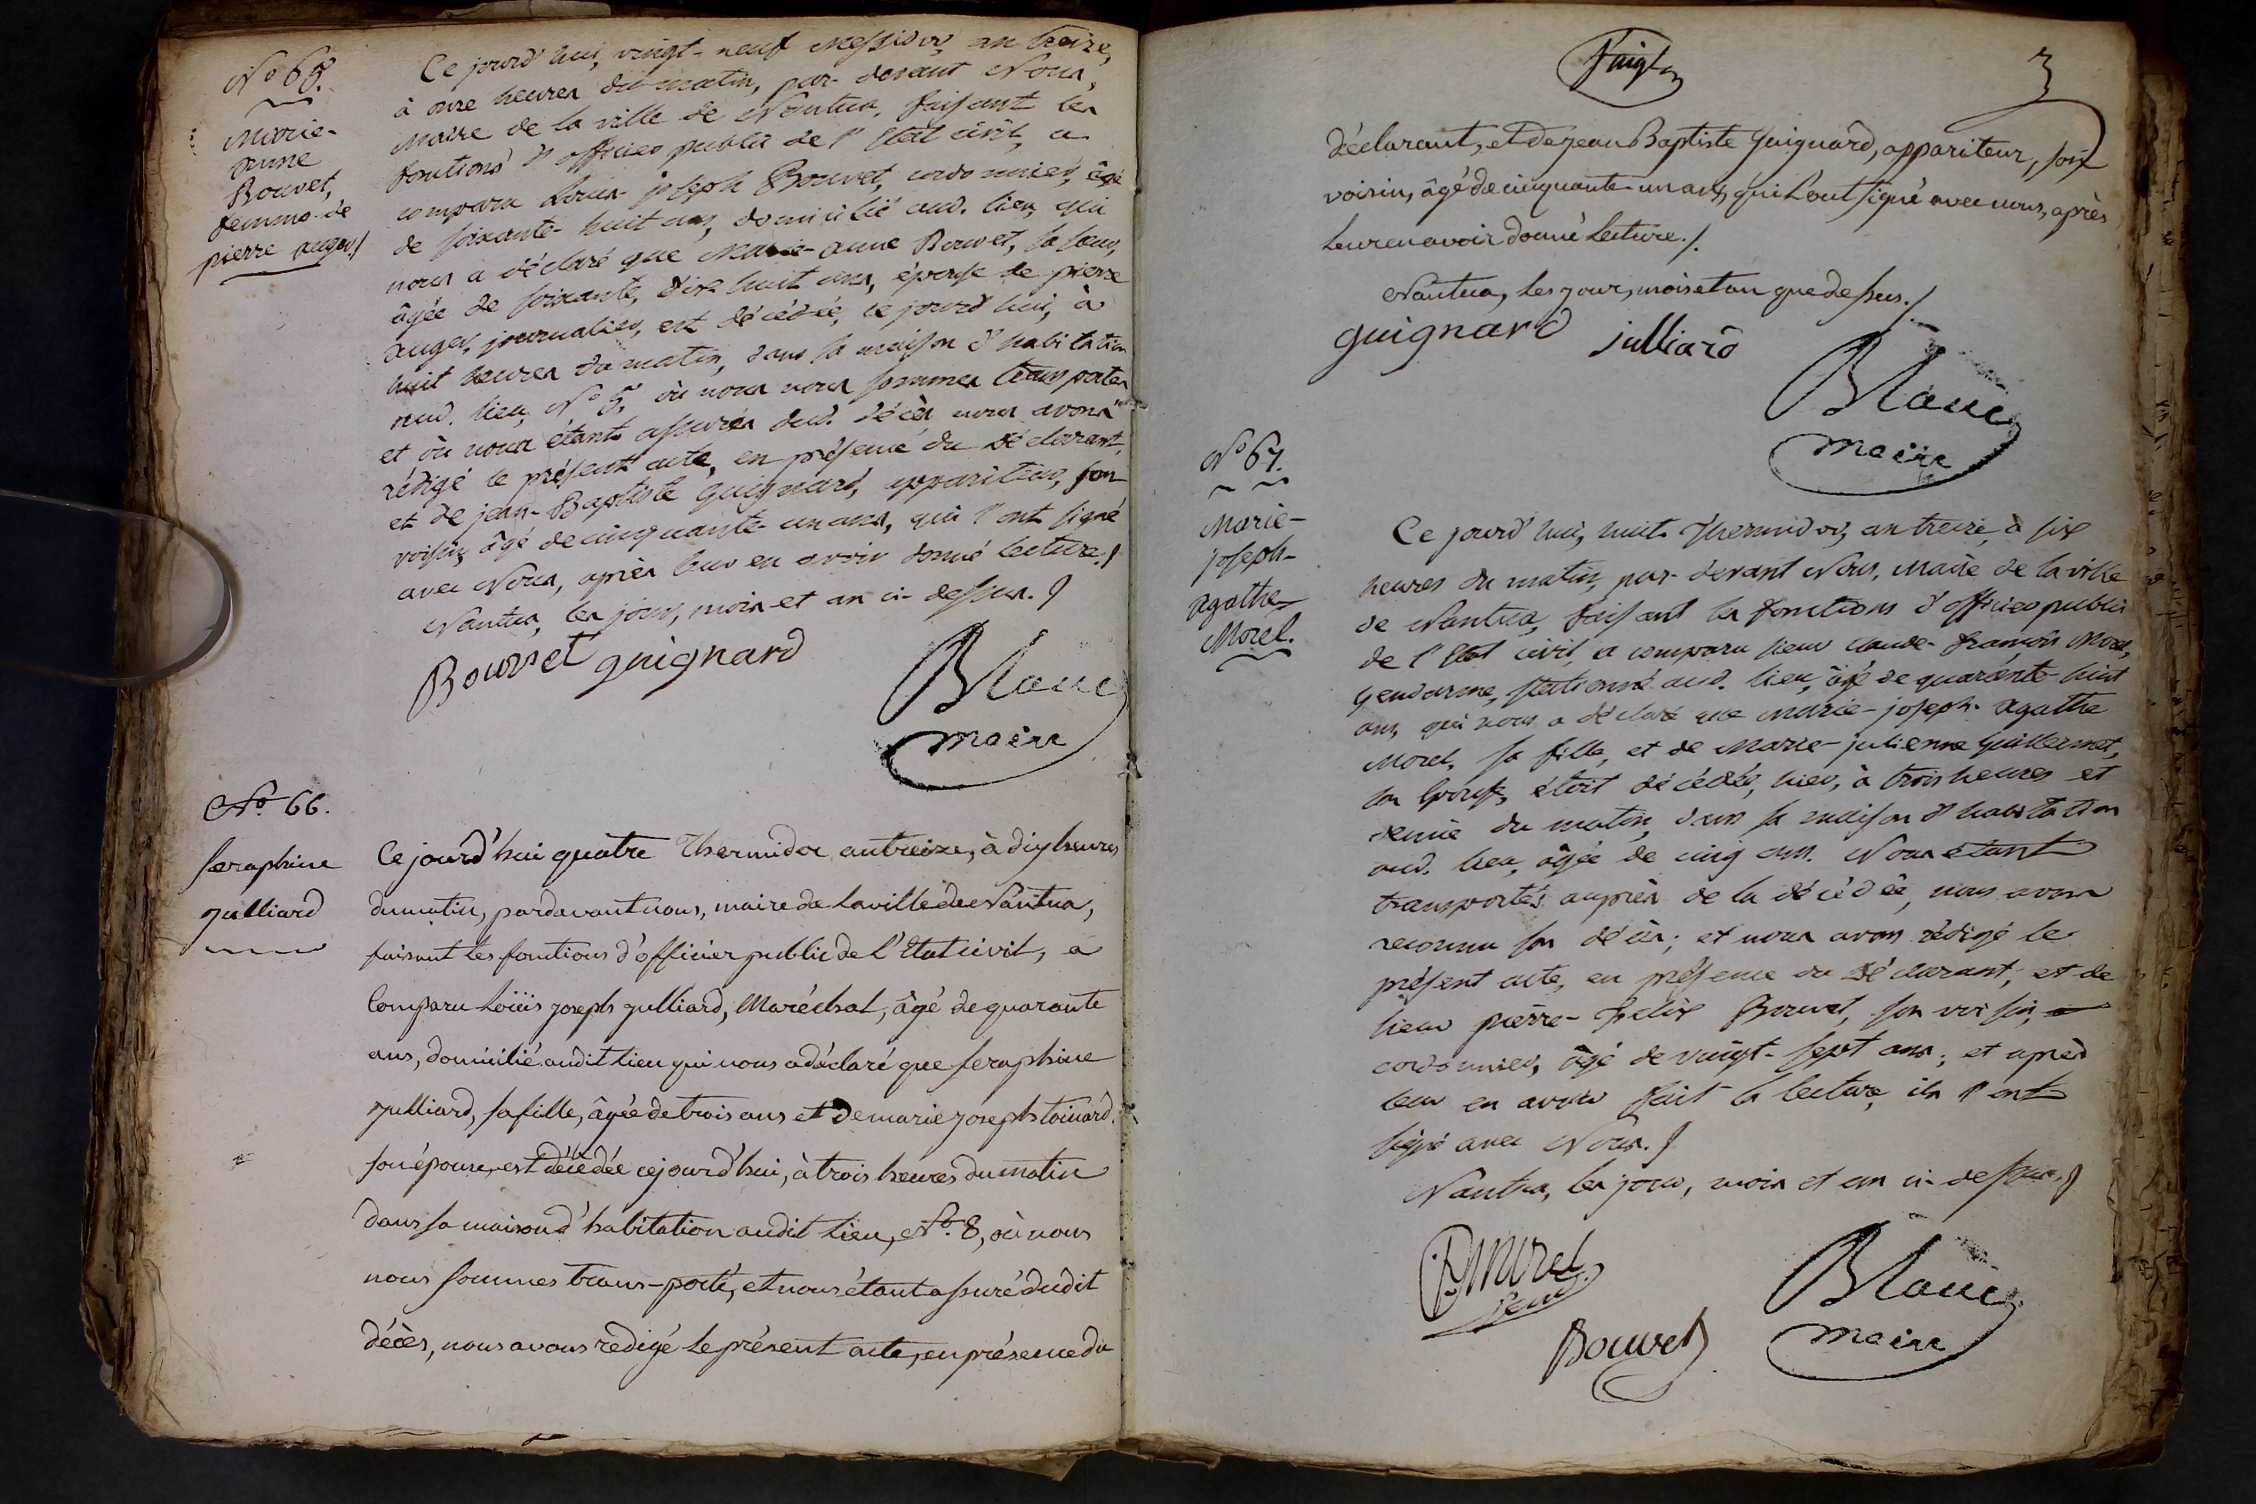 N.o 65.
Marie-
anne
Bouvet,
femme de
pierre auger./
Ce jourd'hui, vingt-neuf messidor, an treize,
à onze heures du matin, par-devant Nous,
Maire de la ville de Nantua, faisant les
fonctions d'officier public de l'Etat civil, a
comparu Louis joseph Bouvet, cordonnier, âgé
de soixante-huit ans, domicilié aud. lieu, qui
nous a déclaré que Marie-anne Bouvet, sa sœur,
âgée de soixante, dix huit ans, épouse de pierre
auger, journalier, est décédée, ce jourd'hui, à
huit heures du matin, dans sa maison d'habitation
aud. lieu, N.o 5, où nous nous sommes transportés
et où nous étants assurés dud. décès, nous avons
rédigé le présent acte, en présence du déclarant,
et de jean-Baptiste Guignard, appariteur, son
voisin, âgé de cinquante-un ans, qui l'ont signé
avec Nous, après leur en avoir donné lecture./
Nantua, les jour, mois et an ci-dessus./
Bouvet guignard
Blanc
maire
N.o 66.
seraphine
Julliard
Ce jourd'hui quatre Thermidor an treize, à dix heures
du matin, pardevant nous, maire de la ville de Nantua,
faisant les fonctions d'officier public de l'Etat civil, a
Comparu Loüis joseph Julliard, Maréchal, âgé de quarante
ans, domicilié audit lieu qui nous a déclaré que seraphine
Julliard, sa fille, âgée de trois ans et de marie joseph toinard.
son épouse, est décédée cejourd'hui, à trois heures du matin
dans sa maison d'habitation audit lieu, N.o 8, où nous
nous sommes trans-porté, et nous étant assuré dudit
décès, nous avons redigé le présent acte, en présence du
3
déclarant, et de jean Baptiste Guignard, appariteur, son
voisin, âgé de cinquante-un ans, qui l'ont signé avec nous, après
leur en avoir donné lecture./.
Nantua, les jour, mois et an que dessus./
guignard julliard
Blanc
maire
N.o 67.
Marie-
joseph-
agathe
Morel.
Ce jourd'hui, huit Thermidor, an treize, à six
heures du matin, par-devant Nous, Maire de la ville
de Nantua, faisant les fonctions d'officier public
de l'Etat civil, a comparu sieur Claude-françois Morel,
gendarme, stationné aud. lieu, âgé de quarante-huit
ans, qui nous a déclaré que Marie-joseph-agathe
Morel, sa fille, et de Marie-julienne Guillermet,
son Epouse, étoit décédée, hier, à trois heures et
demie du matin, dans sa maison d'habitation
aud. lieu, âgée de cinq ans. Nous étant
transportés auprès de la décédée, nous avons
reconnu son décès; et nous avons rédigé le
présent acte, en présence du déclarant, et de
sieur pierre-felix Bouvet, son voisin,
cordonnier, âgé de vingt-sept ans; et après
leur en avoir fait la lecture, ils l'ont
signé avec Nous./
Nantua, les jour, mois et an ci-dessus./
Morel
Bouvet
Blanc
maire